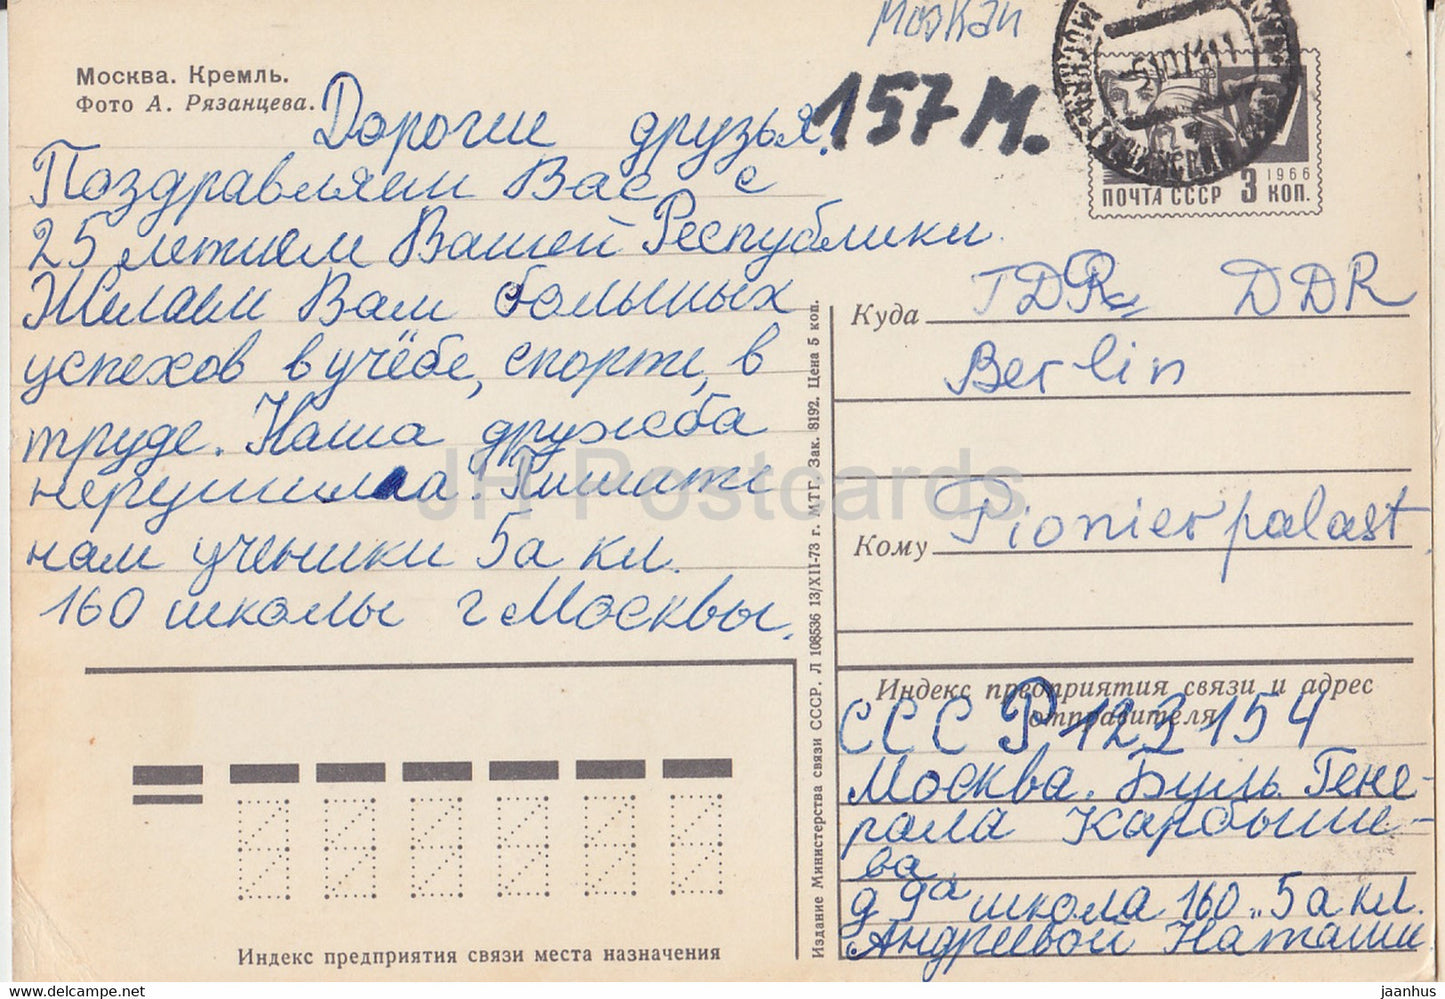 Москва. Кремль.
Фото А. Рязанцева.
157 М.
ПОЧТА СССР 3 КОП.
1966
Дорогие друзья!
Поздравляем Вас с
25 летием Вашей Республики.
Желаем Вам больших
успехов в учёбе, спорте, в
труде. Наша дружба
нерушима! Пишите
нам ученики 5а кл.
160 школы г Москвы.
Куда DDR
Berlin
Кому Pionierpalast.
Индекс предприятия связи и адрес
отправителя
СССР 123154
Москва. Буль. Гене-
рала Карбыше-
ва
д 9а школа 160 „ 5а кл.
Андреевой Наташи
Издание Министерства связи СССР. Л 108536 13/XII-73 г. МТГ. Зак. 8192. Цена 5 коп.
Индекс предприятия связи места назначения
JH Postcards
www.hippostcard.com
jaanhus